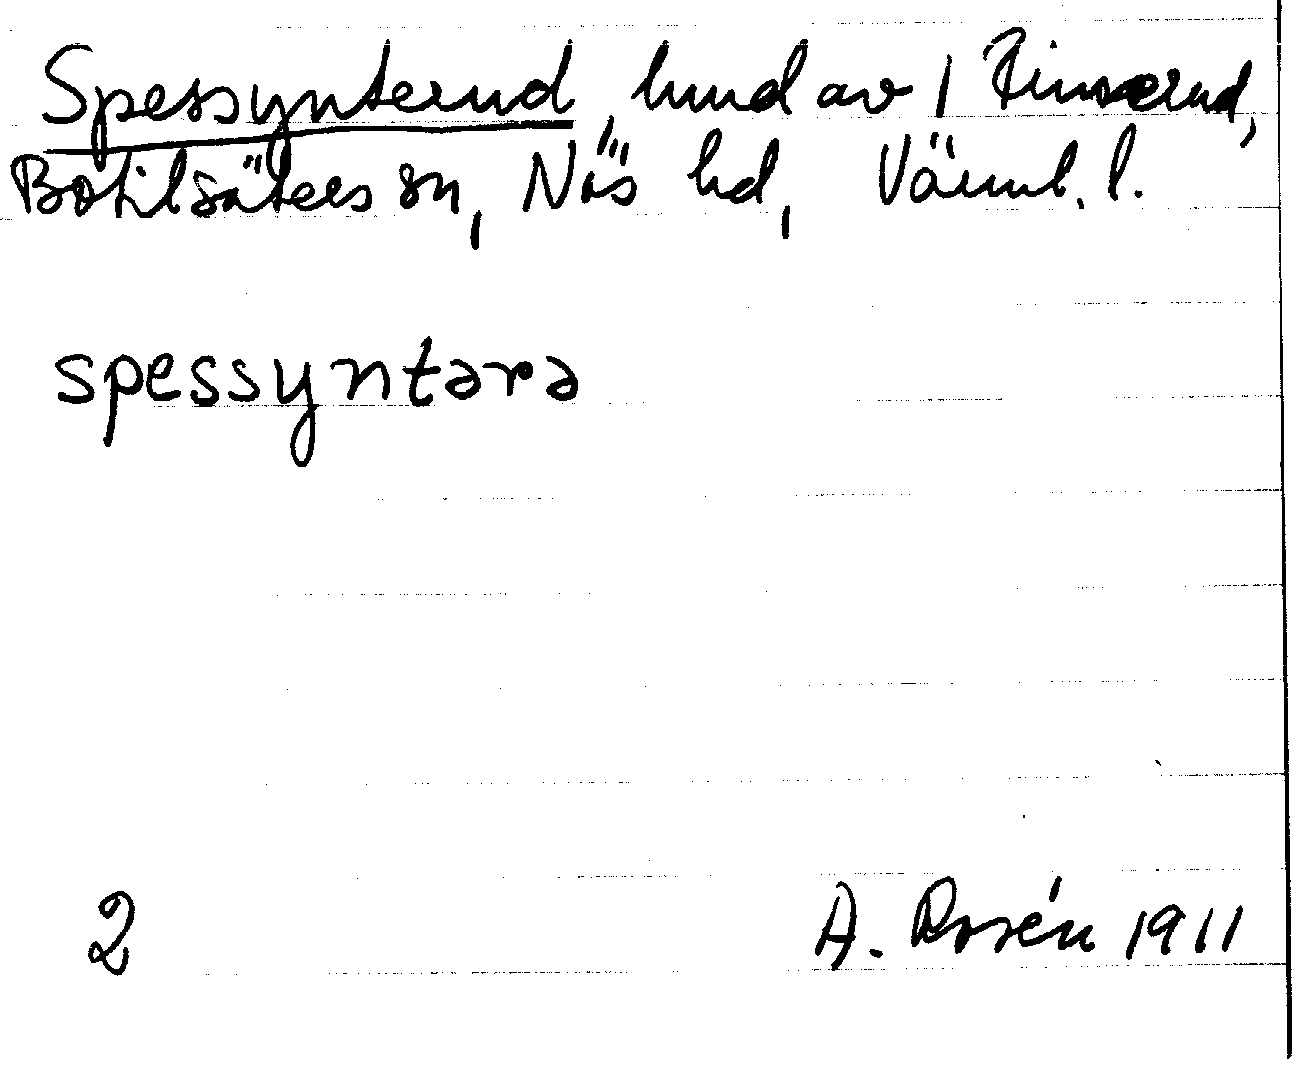 Spessynterud, hmd av 1 Rinnerud,
Botilsäters sn, Näs hd, Värml. l.
spessyntərə
2
A. Rosén 1911